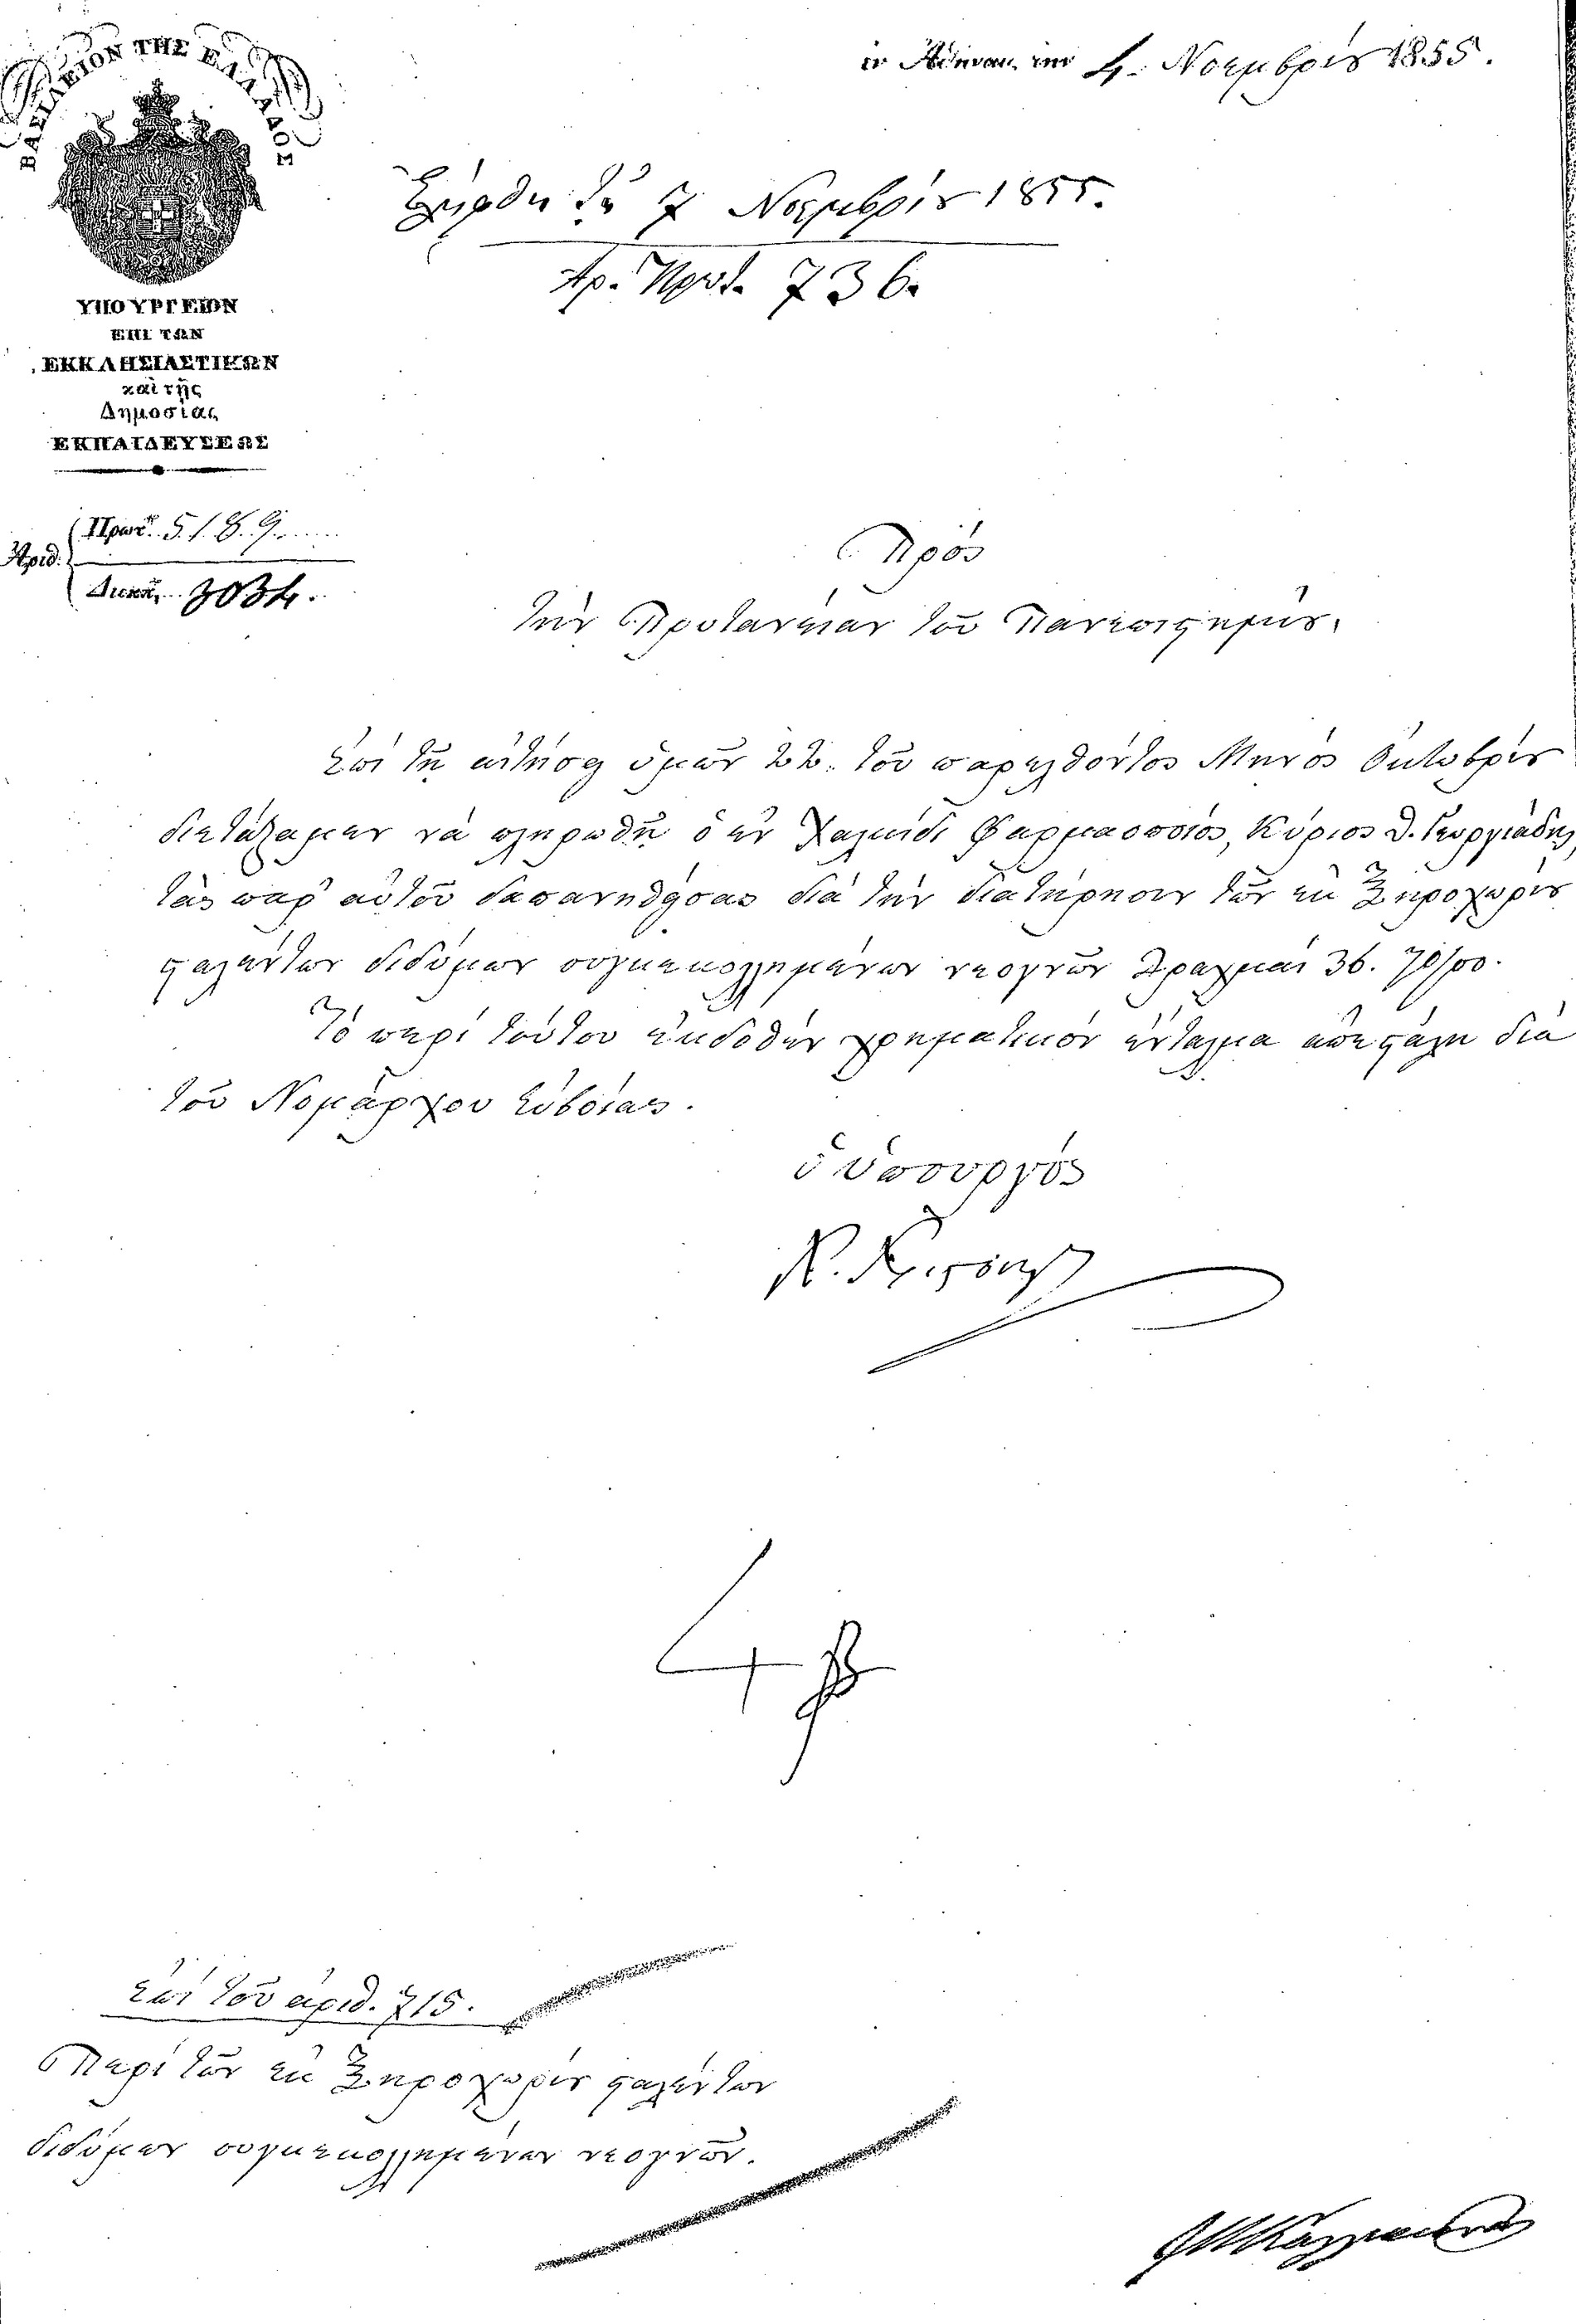 ΒΑΣΙΛΕΙΟΝ ΤΗΣ ΕΛΛΑΔΟΣ
ἐν Ἀθήναις τὴν 4. Νοεμβρίου 1855.
Ἐλήφθη τῇ 7 Νοεμβρίου 1855.
Ἀρ. Πρωτ. 736.
ΥΠΟΥΡΓΕΙΟΝ
ΕΠΙ ΤΩΝ
ΕΚΚΛΗΣΙΑΣΤΙΚΩΝ
καὶ τῆς
Δημοσίας
ΕΚΠΑΙΔΕΥΣΕΩΣ
Πρωτ. 5189
Ἀριθ.
Διεκπ. 3034.
Πρὸς
τὴν Πρυτανείαν τοῦ Πανεπιστημίου.
Ἐπὶ τῇ αἰτήσει ὑμῶν 22. τοῦ παρελθόντος Μηνὸς Ὀκτωβρίου
διετάξαμεν νὰ πληρωθῇ ὁ ἐν Χαλκίδι Φαρμακοποιός, Κύριος Θ. Γεωργιάδης,
τὰς παρ' αὐτοῦ δαπανηθείσας διὰ τὴν διατήρησιν τῶν ἐκ Ξηροχωρίου
σταλέντων διδύμων συγκεκολλημένων νεογνῶν δραχμὰς 36. 70/00.
Τὸ περὶ τούτου ἐκδοθὲν χρηματικὸν ἔνταλμα ἀπεστάλη διὰ
τοῦ Νομάρχου Εὐβοίας.
ὁ Ὑπουργὸς
ἐπὶ τοῦ ἀριθ. 715.
Περὶ τῶν ἐκ Ξηροχωρίου σταλέντων
διδύμων συγκεκολλημένων νεογνῶν.